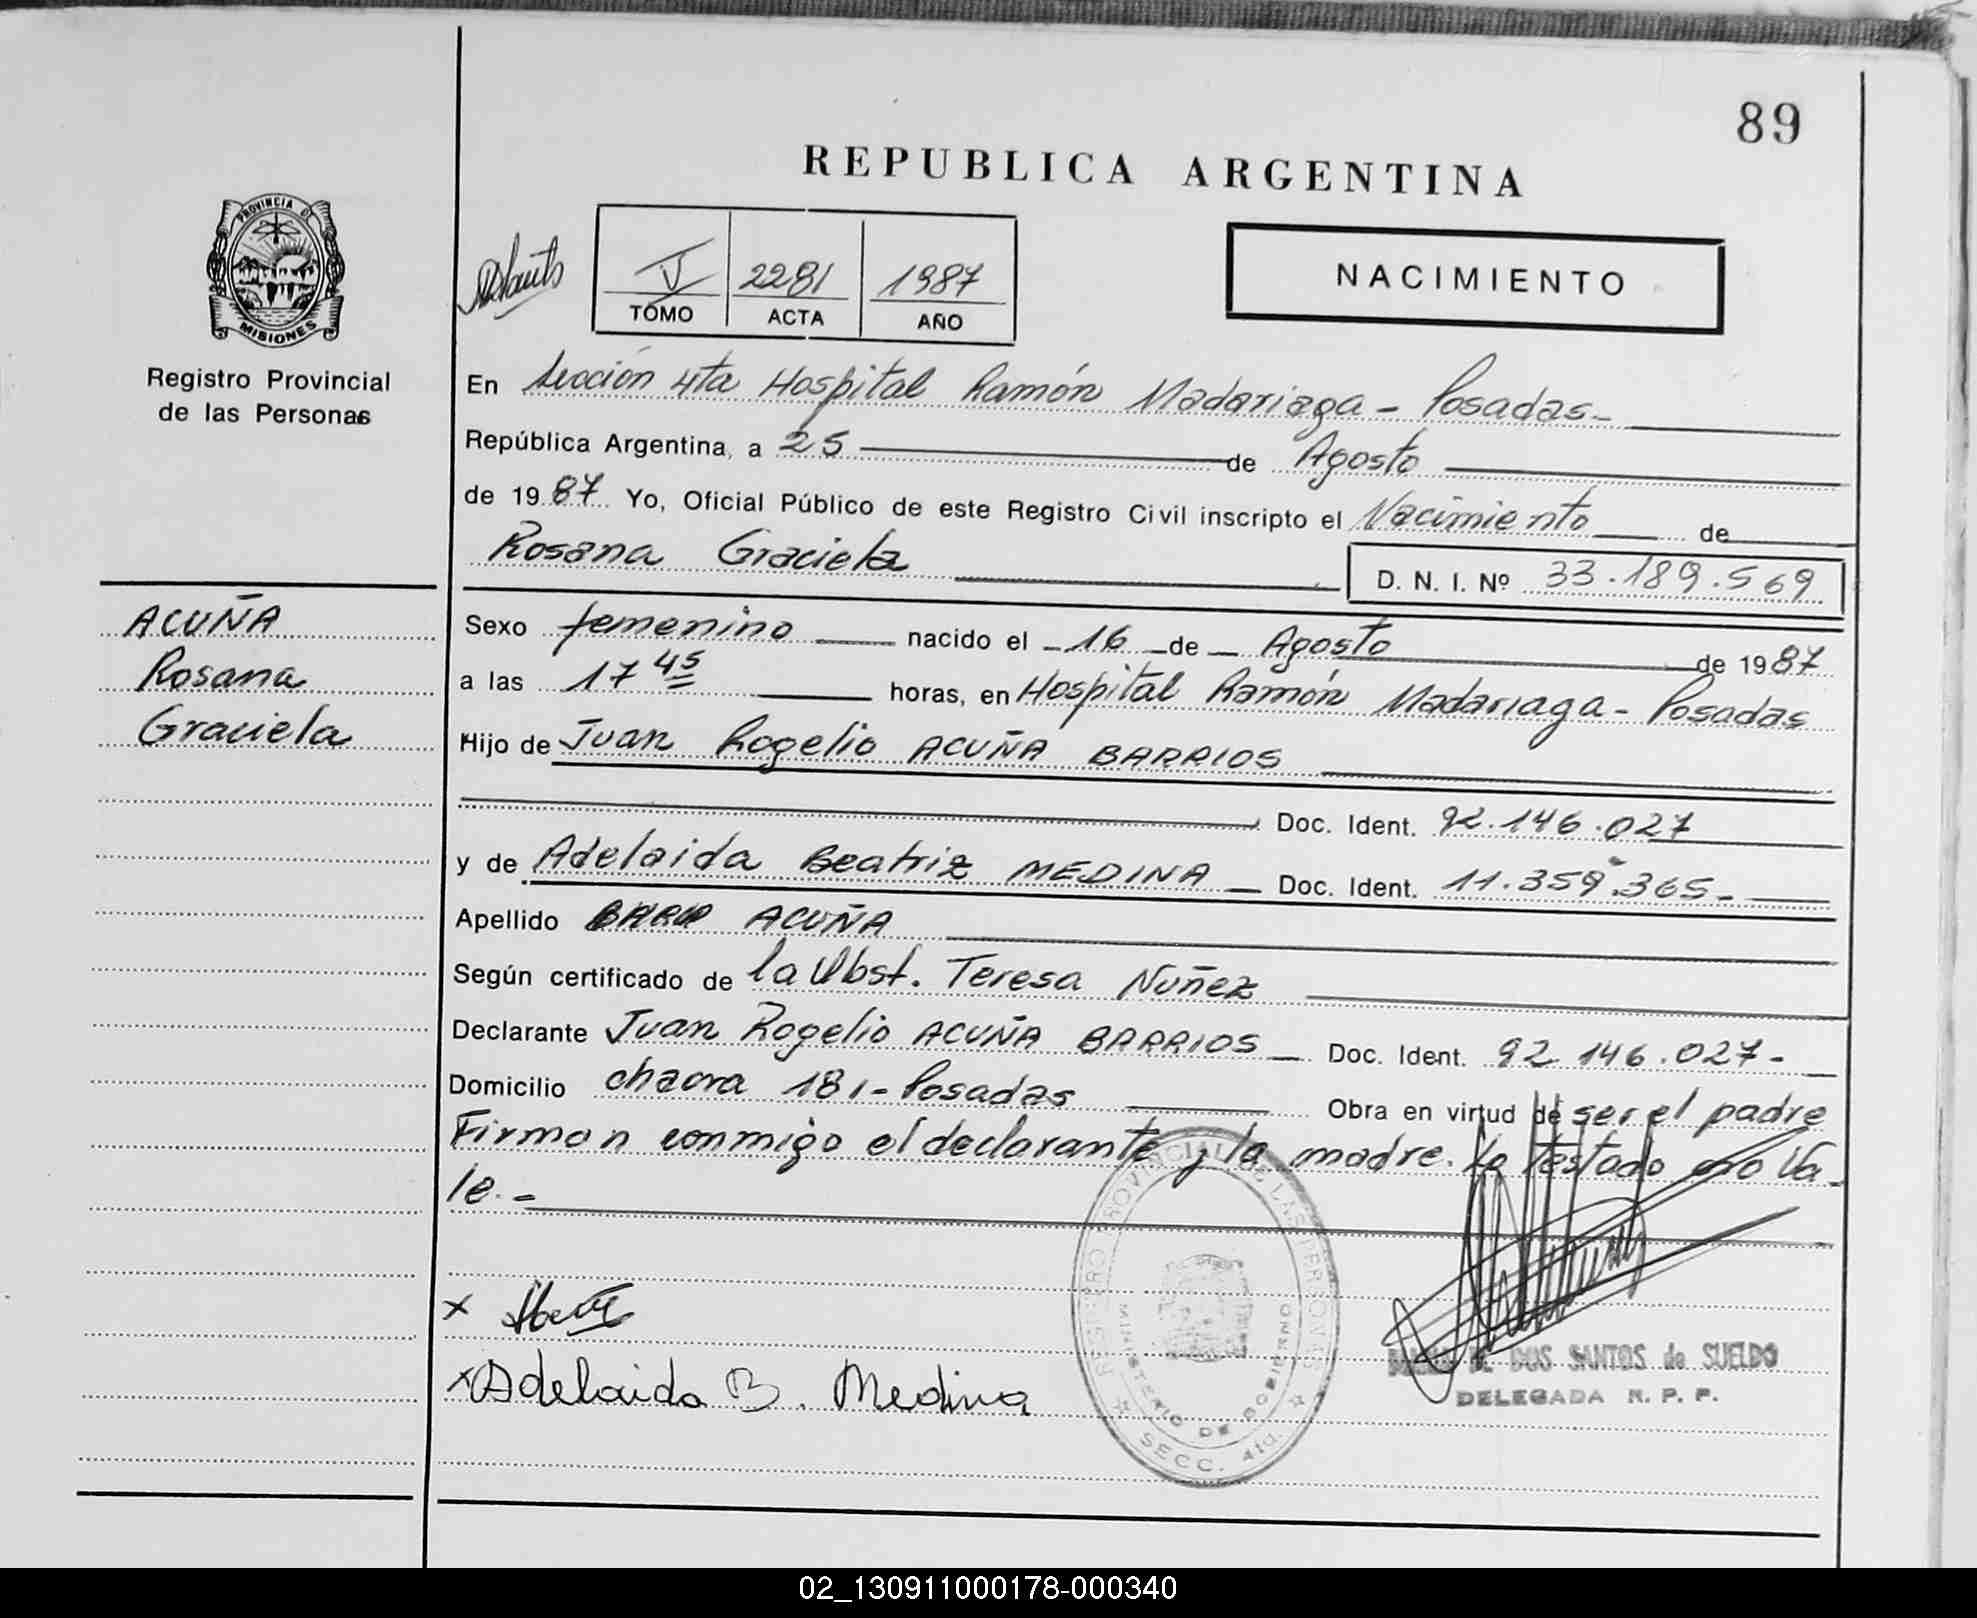 89
REPUBLICA ARGENTINA
PROVINCIA DE
MISIONES
Registro Provincial
de las Personas
V 2281 1987
TOMO ACTA AÑO
NACIMIENTO
En Sección 4ta Hospital Ramón Madariaga - Posadas -
República Argentina, a 25 de Agosto
de 1987 Yo, Oficial Público de este Registro Civil inscripto el Nacimiento de
Rosana Graciela D. N. I. Nº 33.189.569
ACUÑA
Rosana
Graciela
Sexo femenino nacido el 16 de Agosto de 1987
a las 17 45 horas, en Hospital Ramón Madariaga - Posadas
Hijo de Juan Rogelio ACUÑA BARRIOS
Doc. Ident. 92.146.027
y de Adelaida Beatriz MEDINA Doc. Ident. 11.359.365 -
Apellido ACUÑA
Según certificado de la Obst. Teresa Nuñez
Declarante Juan Rogelio ACUÑA BARRIOS Doc. Ident. 92 146.027 -
Domicilio chacra 181 - Posadas Obra en virtud de ser el padre
Firman conmigo el declarante y la madre. Lo testado no va
le. -
x
x Adelaida B. Medina
REGISTRO PROVINCIAL DE LAS PERSONAS
MINISTERIO DE GOBIERNO
SECC. 4ta.
DOS SANTOS de SUELDO
DELEGADA R. P. P.
02_130911000178-000340